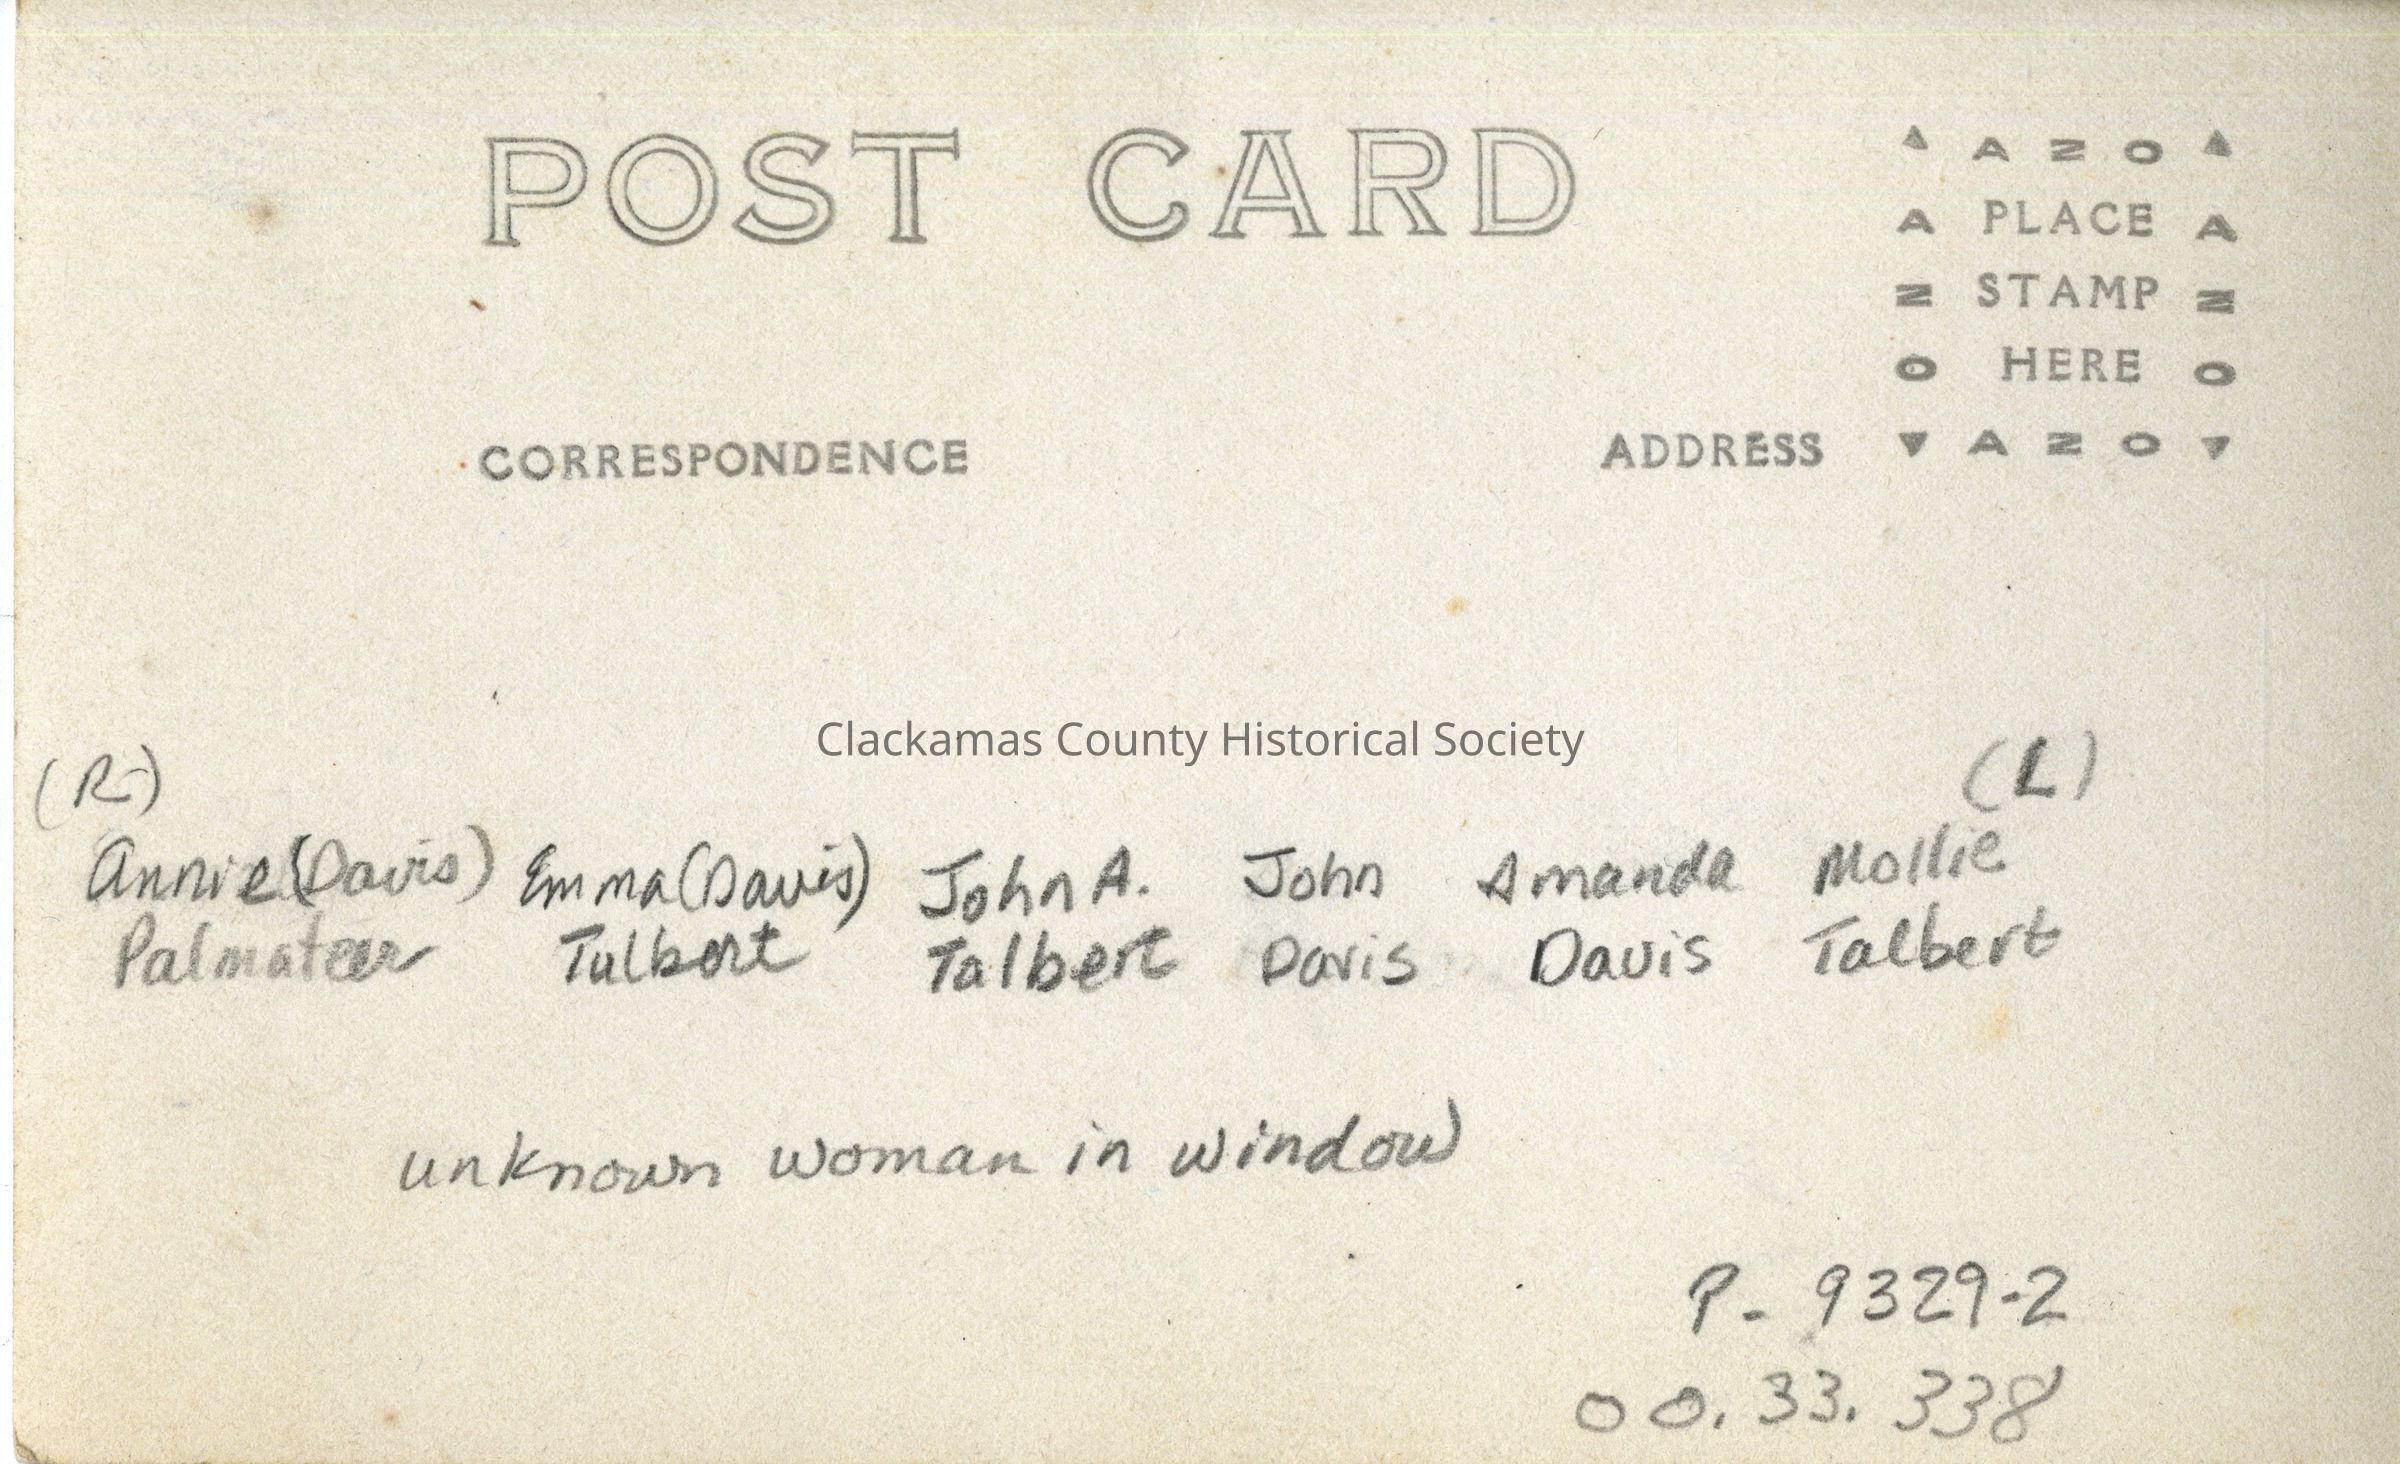 POST CARD
▲ A Z O ▲
A PLACE A
Z STAMP Z
O HERE O
CORRESPONDENCE ADDRESS ▼ A Z O ▼
Clackamas County Historical Society
(R) (L)
Annie (Davis) Emma (Davis) John A. John Amanda Mollie
Palmateer Tulbert Talbert Davis Davis Talbert
unknown woman in window
P- 9329-2
00.33.338